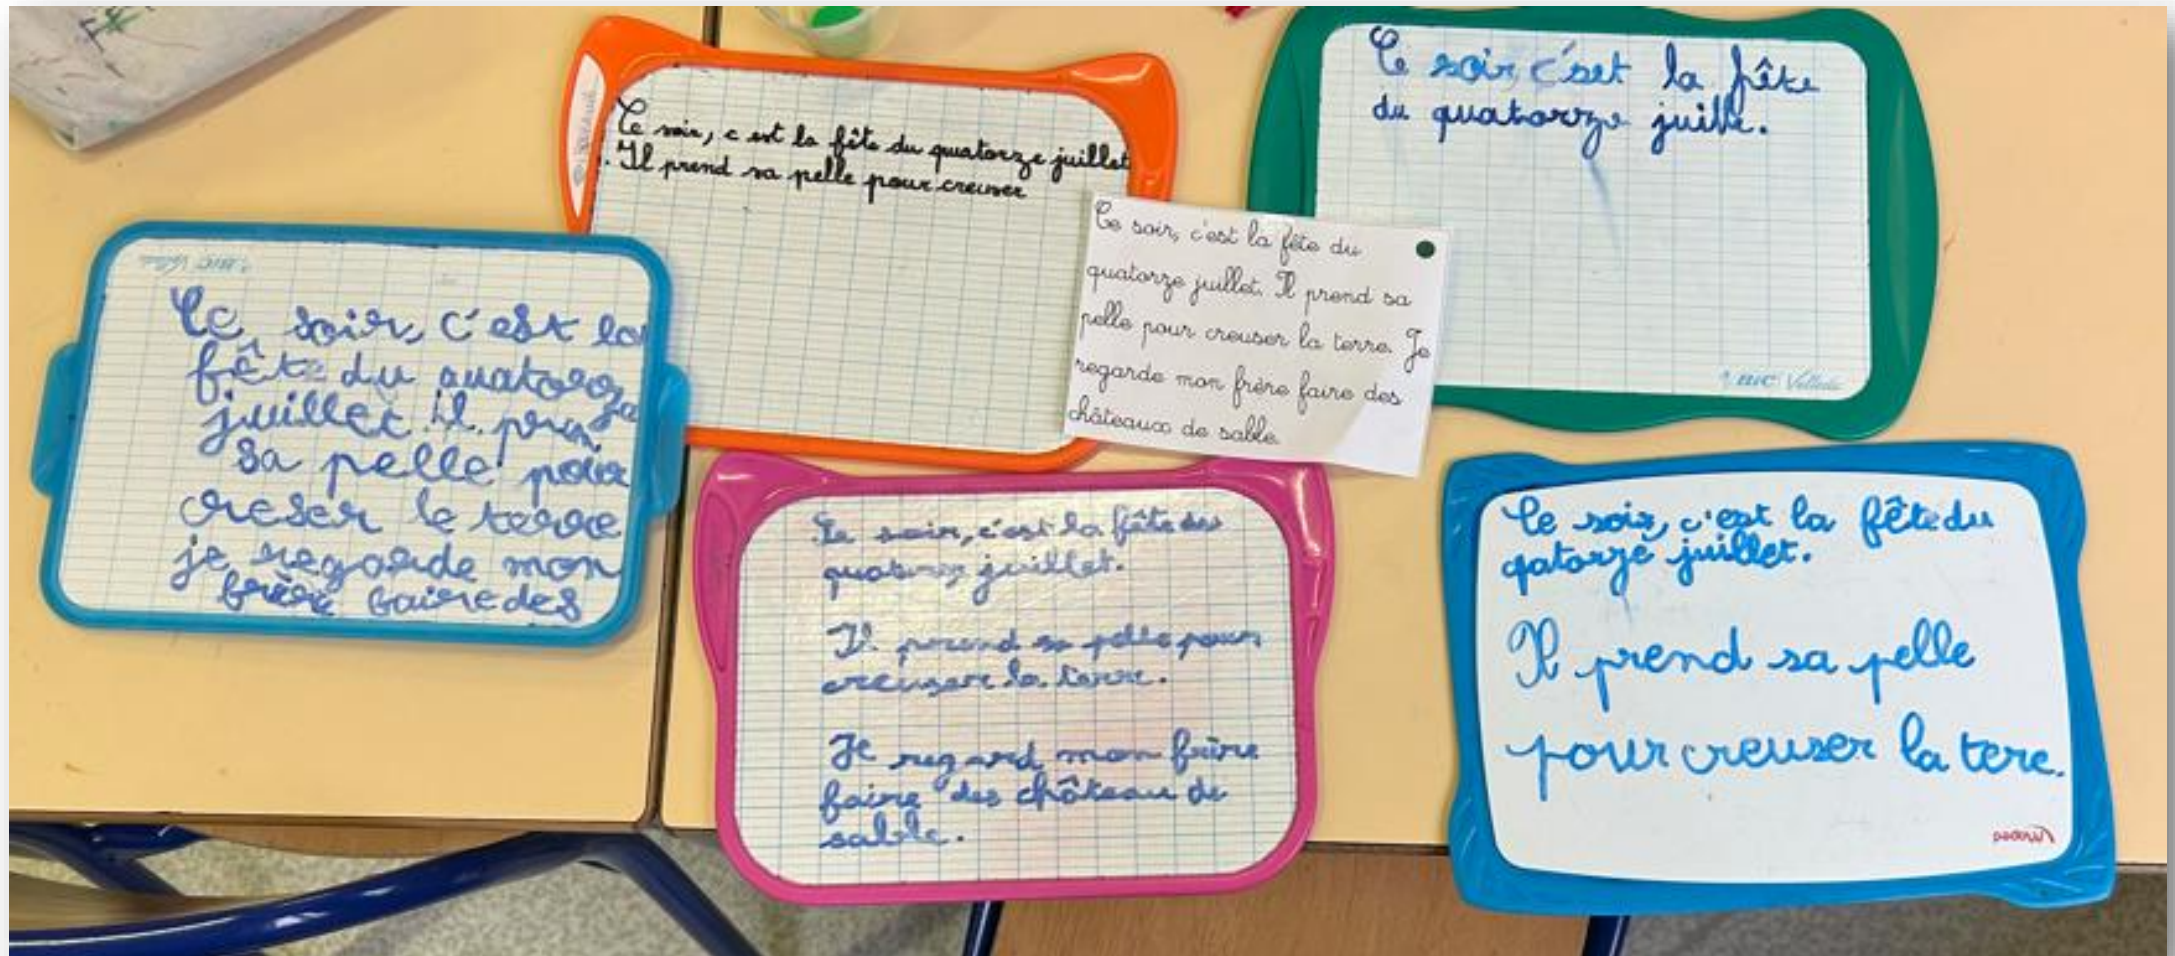 Ce soir, c'est la
fête du quatorze
juillet il pren
sa pelle pour
creser le terre
je regarde mon
frère faire des
Ce soir, c est la fête du quatorze juillet
. Il prend sa pelle pour creuser
Ce soir, c'est la fête du
quatorze juillet. Il prend sa
pelle pour creuser la terre. Je
regarde mon frère faire des
châteaux de sable.
Ce soir, c'set la fête
du quatorze juille.
Velleda
Ce soir, c'est la fête du
juillet.
Il prend sa pelle pour
creuser la terre.
Je regard mon frère
faire des château de
sable.
Ce soir, c'est la fête du
qatorze juillet.
Il prend sa pelle
pour creuser la tere.